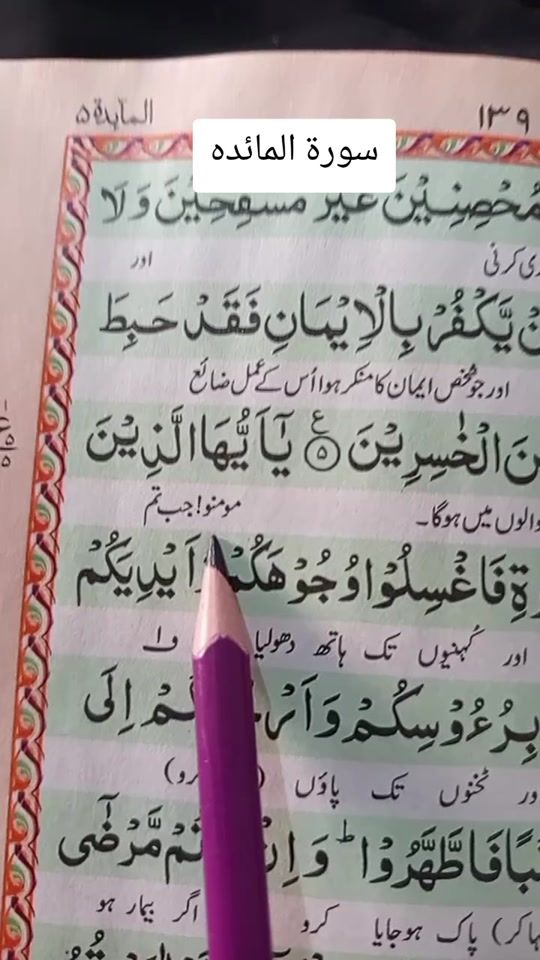 المآئدة ۵
١٣٩
سورة المائدہ
مُحْصِنِيْنَ غَيْرَ مُسٰفِحِيْنَ وَلَا
کرنی اور
يَّكْفُرْ بِالْاِيْمَانِ فَقَدْ حَبِطَ
اور جو شخص ایمان کا منکر ہوا اُس کے عمل ضائع
الْخٰسِرِيْنَ ۵ ع يٰۤاَيُّهَا الَّذِيْنَ
والوں میں ہوگا۔ مومنو! جب تم
فَاغْسِلُوْا وُجُوْهَكُمْ اَيْدِيَكُمْ
اور کہنیوں تک ہاتھ دھولیا
بِرُءُوْسِكُمْ اِلَى
ٹخنوں تک پاؤں
فَاطَّهَّرُوْا ؕ مَّرْضٰۤى
پاک ہوجایا کرو اگر بیمار ہو